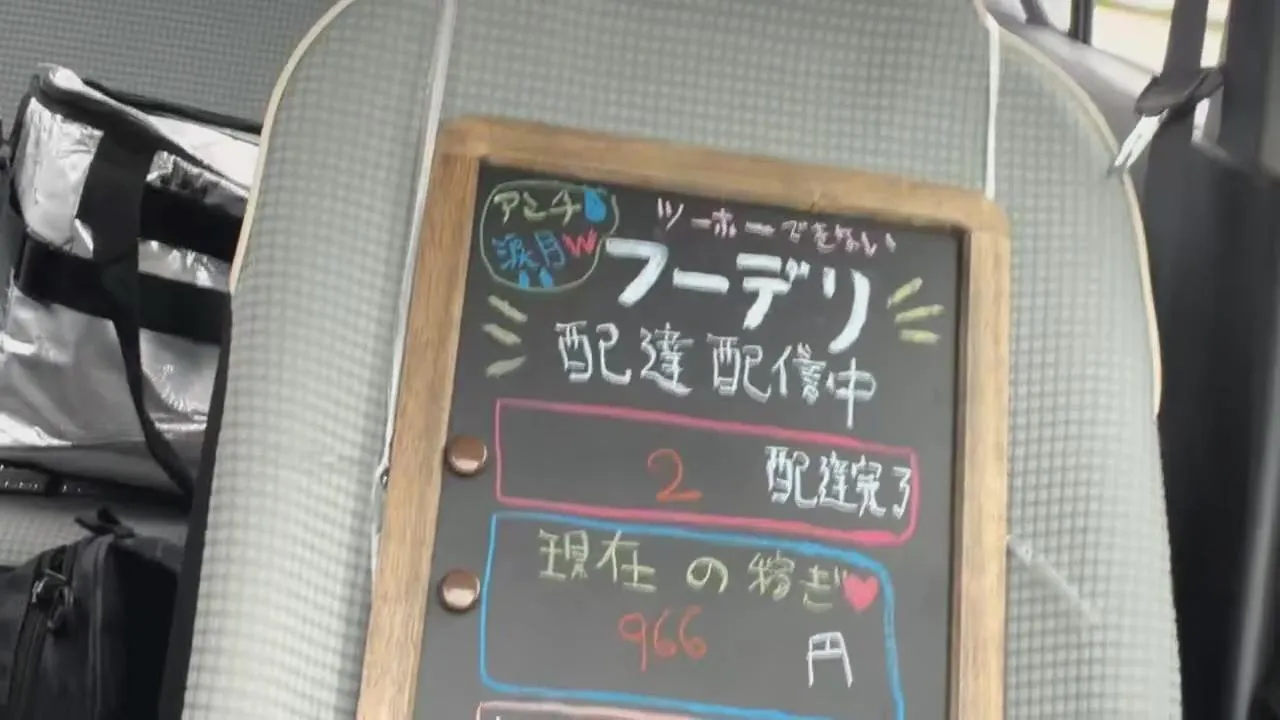 アンチ
涙月W
ツーホーできない
フーデリ
配達配信中
2 配達完了
現在の稼ぎ♥
966 円